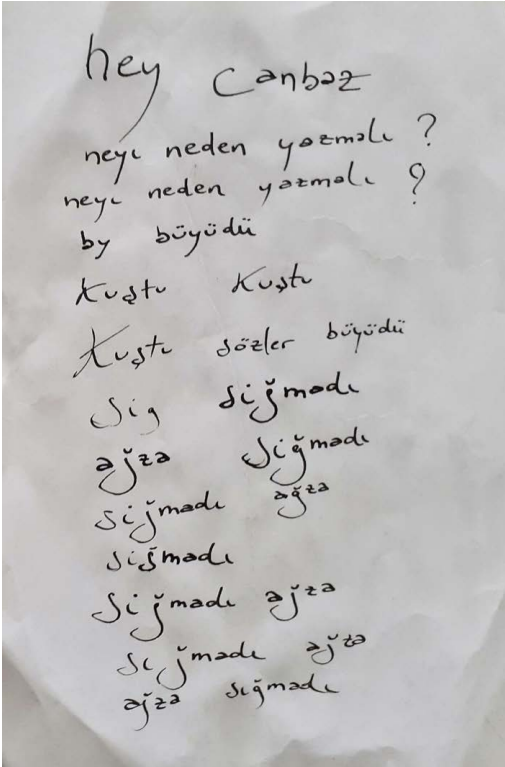 hey canbaz
neyi neden yazmalı ?
neyi neden yazmalı ?
by büyüdü
kuştu kuştu
kuştu sözler büyüdü
sig siğmadı
ağza siğmadı
siğmadı ağza
siğmadı
siğmadı ağza
sığmadı ağza
ağza sığmadı